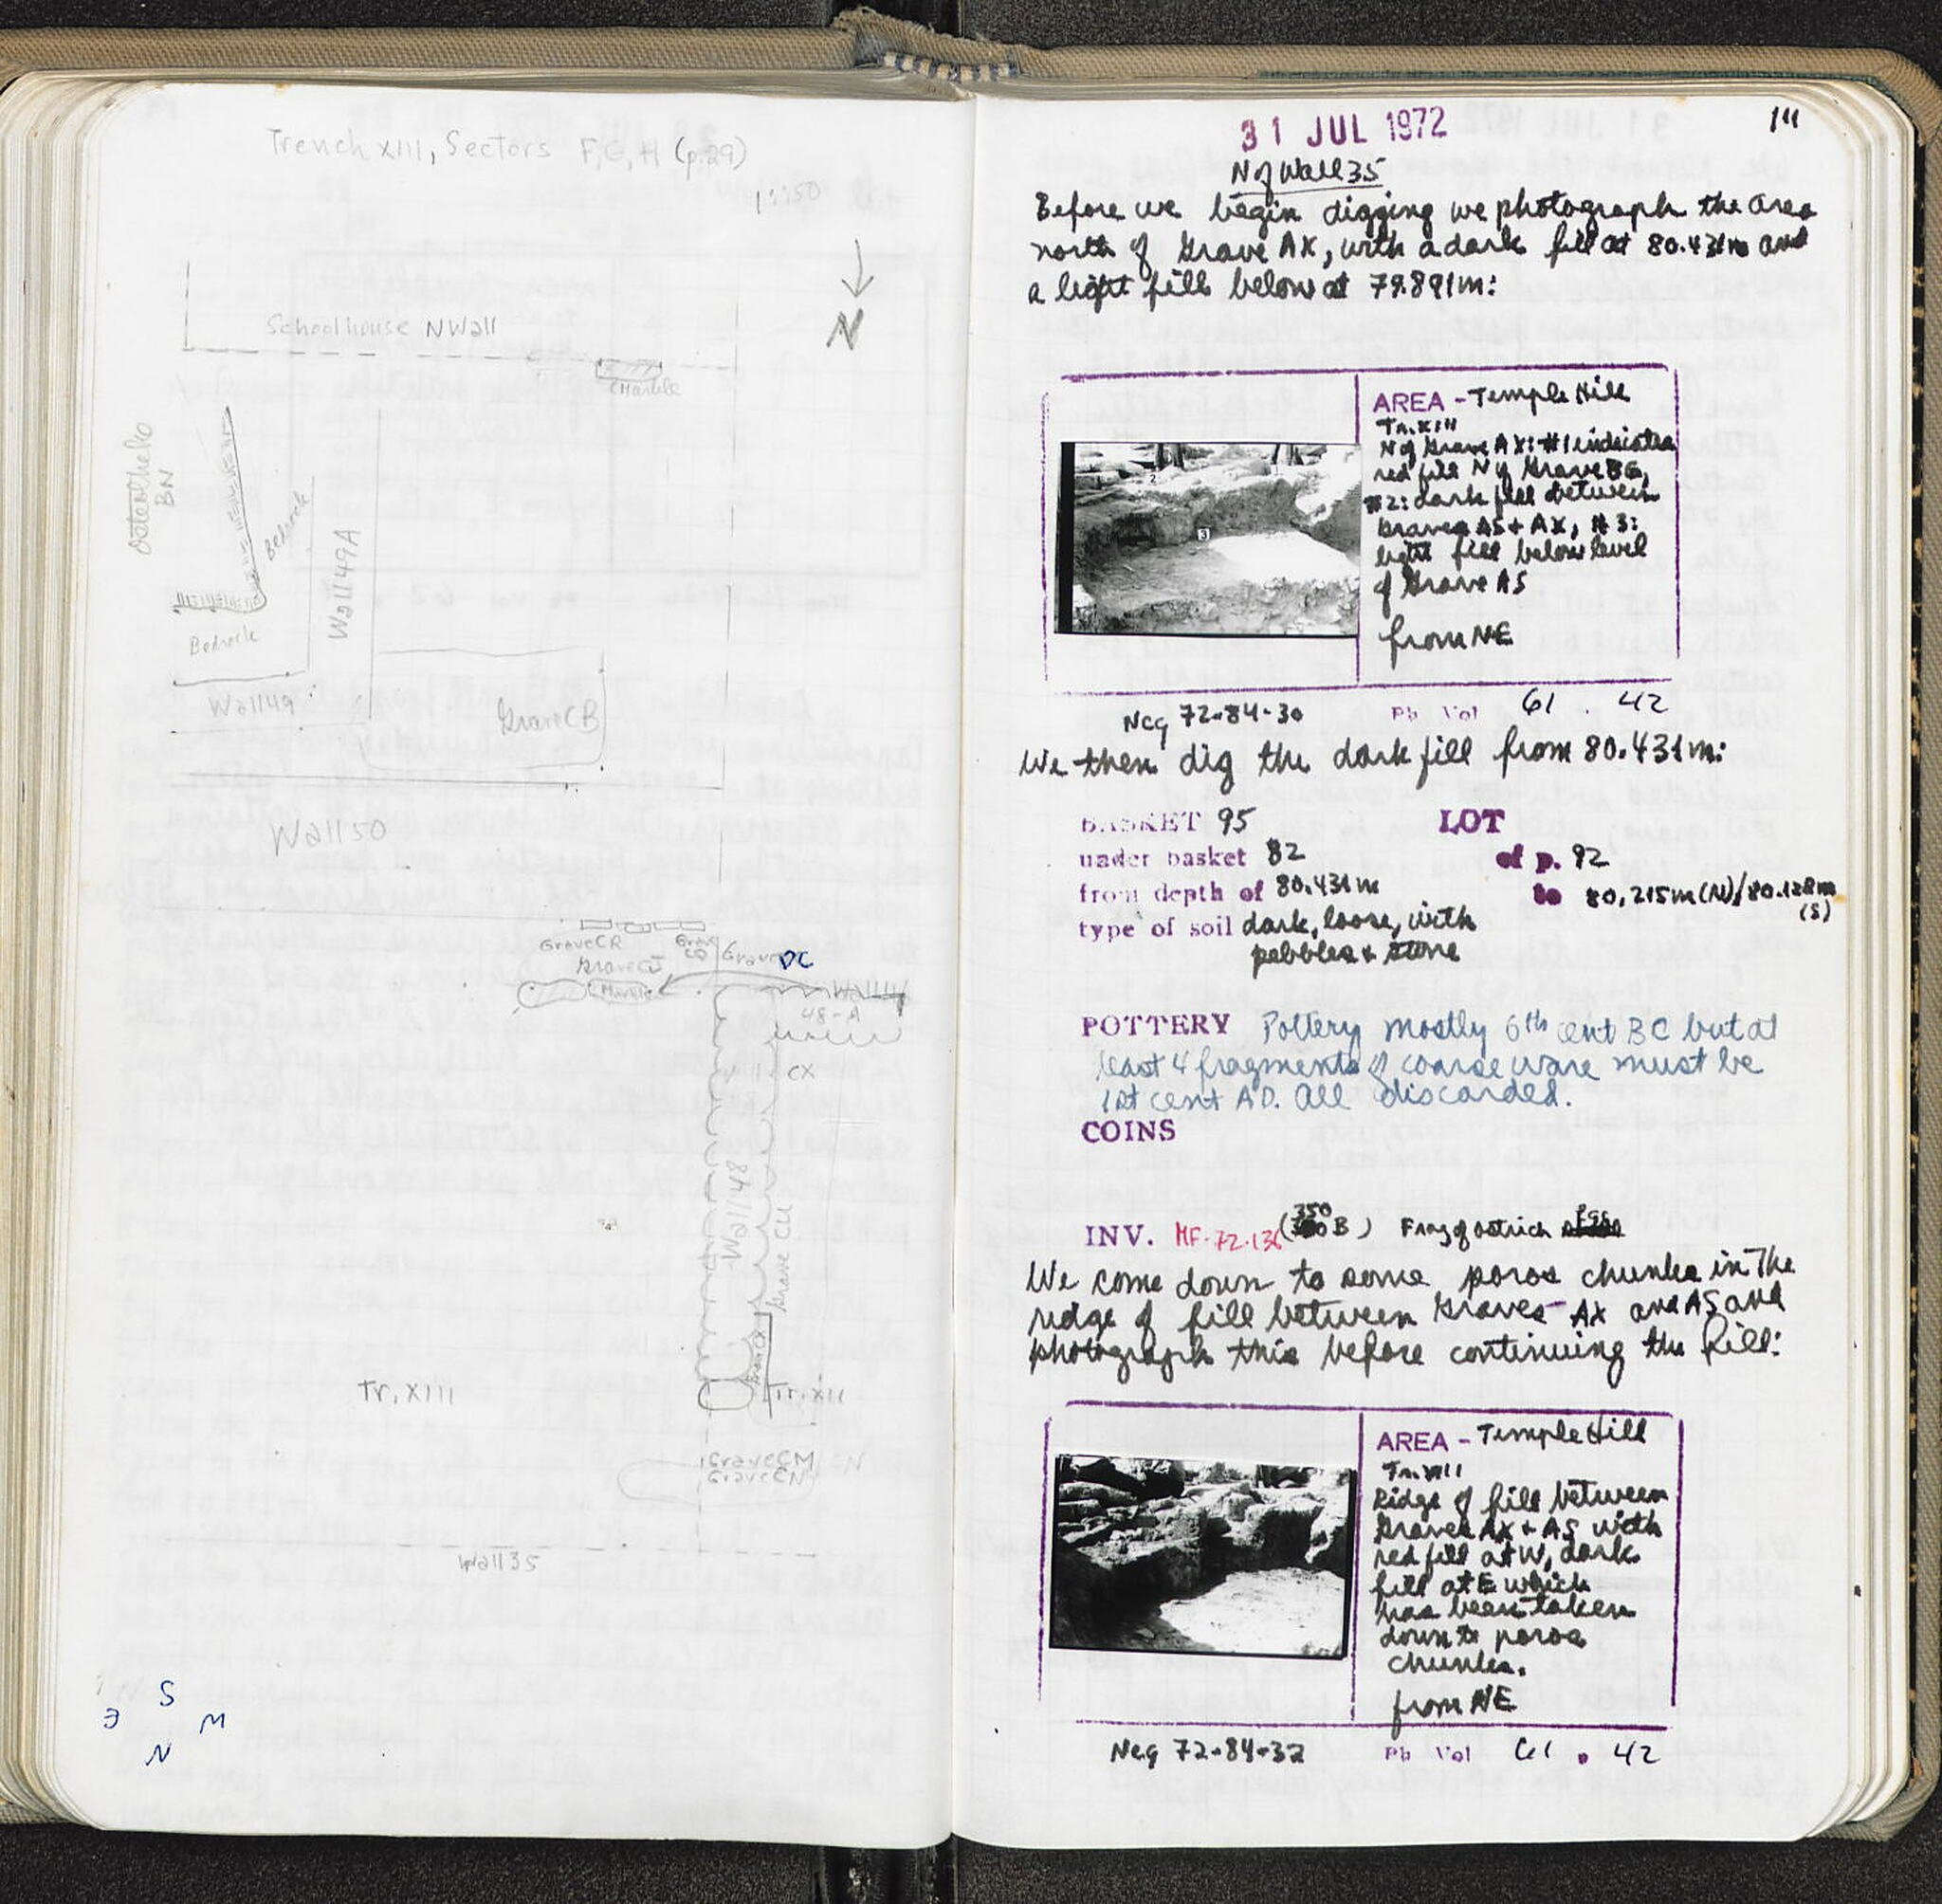 Trench XIII, Sectors F, G, H (p. 29)
1:150
N
Schoolhouse N Wall
Marble
BN
Bedrock
Wall 49A
Bedrock
Wall 49
Grave CB
Wall 50
Grave CR
Grave CJ
Grave
CQ
Grave DC
Marble
Wall
48-A
CX
Wall 48
Grave CU
Tr. XIII
Tr. XII
Grave CM
Grave CN
Wall 35
S
E W
N
31 JUL 1972
111
N of Wall 35
Before we begin digging we photograph the area
north of Grave AX, with a dark fill at 80.431m and
a light fill below at 79.891m:
AREA - Temple Hill
Tr. XIII
N of Grave AX: #1 indicates
red fill N of Grave BG,
#2: dark fill between
Graves AS + AX, #3:
light fill below level
of Grave AS
from NE
2
3
Neg 72-84-30 Ph Vol 61 . 42
We then dig the dark fill from 80.431m:
BASKET 95 LOT
under basket 82 of p. 92
from depth of 80.431m to 80.215m (N)/80.128m
(S)
type of soil dark, loose, with
pebbles & stone
POTTERY Pottery mostly 6th cent BC but at
least 4 fragments of coarse ware must be
1st cent AD. All discarded.
COINS
INV. MF-72-136 (350 B) Frag of ostrich egg
We come down to some poros chunks in the
ridge of fill between Graves AX and AS and
photograph this before continuing the fill:
AREA - Temple Hill
Tr. XIII
Ridge of fill between
Graves AX + AS with
red fill at W, dark
fill at E which
has been taken
down to poros
chunks.
from NE
Neg 72-84-32 Ph Vol 61 . 42